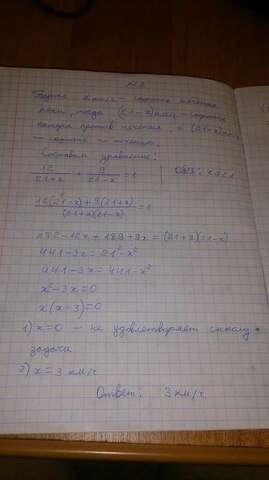 N 2
Пусть x км/ч – скорость течения
реки, тогда (21-x) км/ч – скорость
катера против течения, а (21+x) км/ч
– скорость по течению.
Составим уравнение:
12/(21+x) + 9/(21-x) = 1
(12(21-x)+9(21+x))/((21+x)(21-x)) = 1
252-12x+189+9x = (21+x)(21-x)
441-3x = 21²-x²
441-3x = 441-x²
x²-3x=0
x(x-3)=0
1) x=0 – не удовлетворяет смыслу
задачи
2) x = 3 км/ч
Ответ: 3 км/ч.